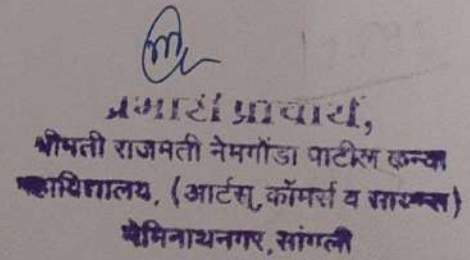 प्रभारी प्राचार्य,
श्रीमती राजमती नेमगोंडा पाटील कन्या
महाविद्यालय, (आर्टस्, कॉमर्स व सायन्स)
नेमिनाथनगर, सांगली